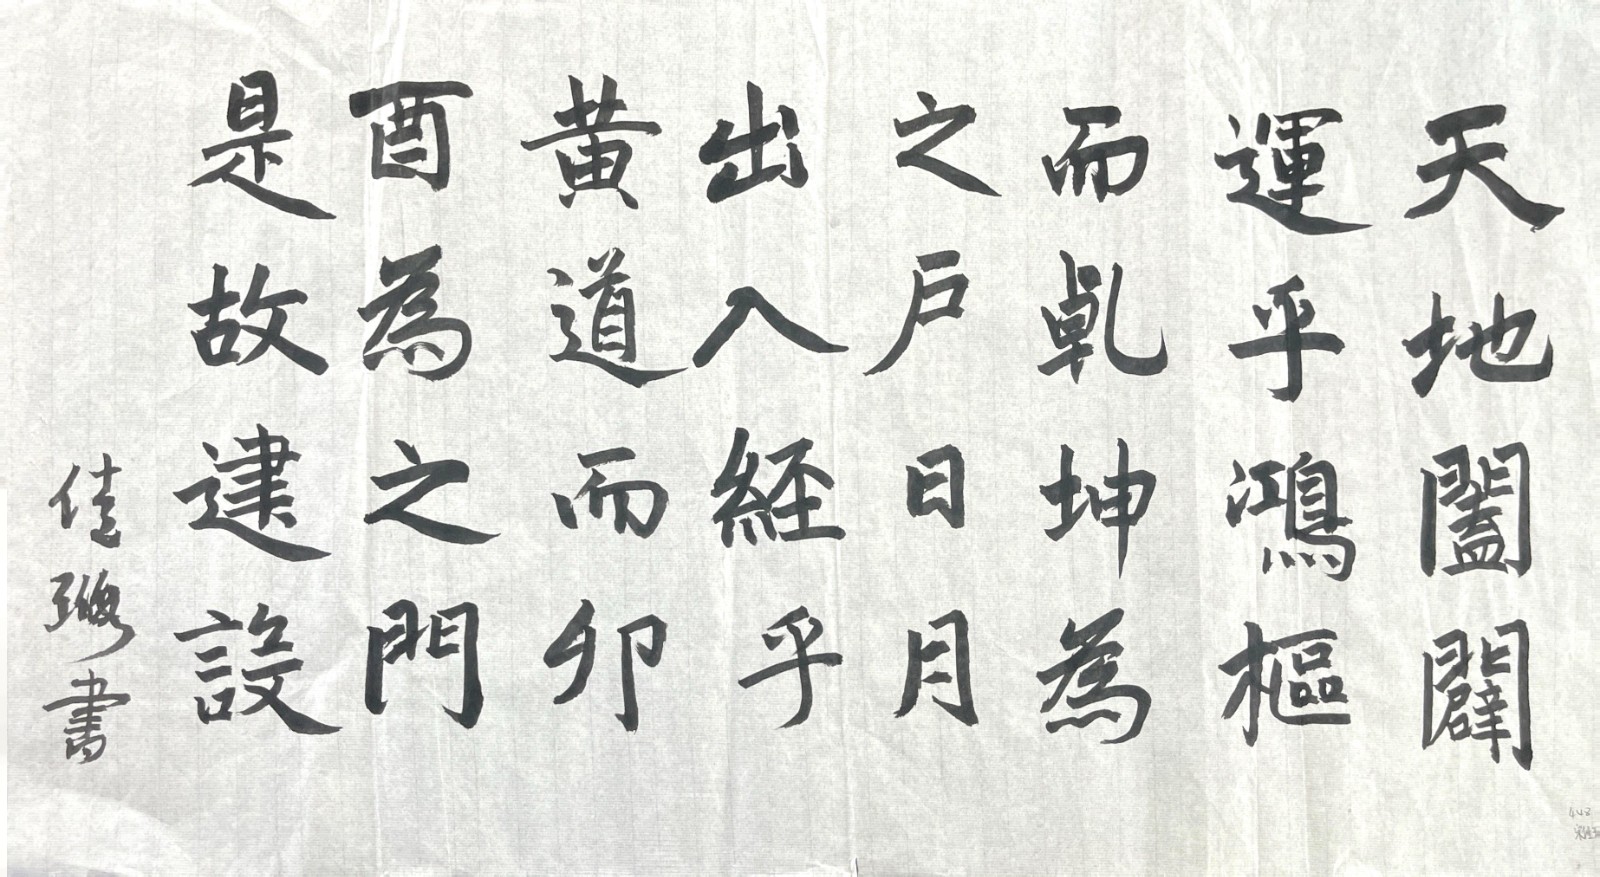 天地闔闢
運乎鴻樞
而乹坤為
之戶日月
出入経乎
黄道而卯
酉為之門
是故建設
佳璇書